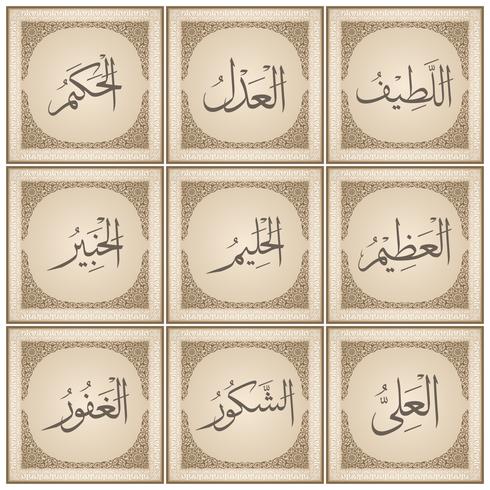 اللَّطِيفُ الْعَدْلُ الْحَكَمُ
الْعَظِيْمُ الْحَلِيْمُ الْخَبِيْرُ
الْعَلِىُّ الشَّكُوْرُ الْغَفُوْرُ